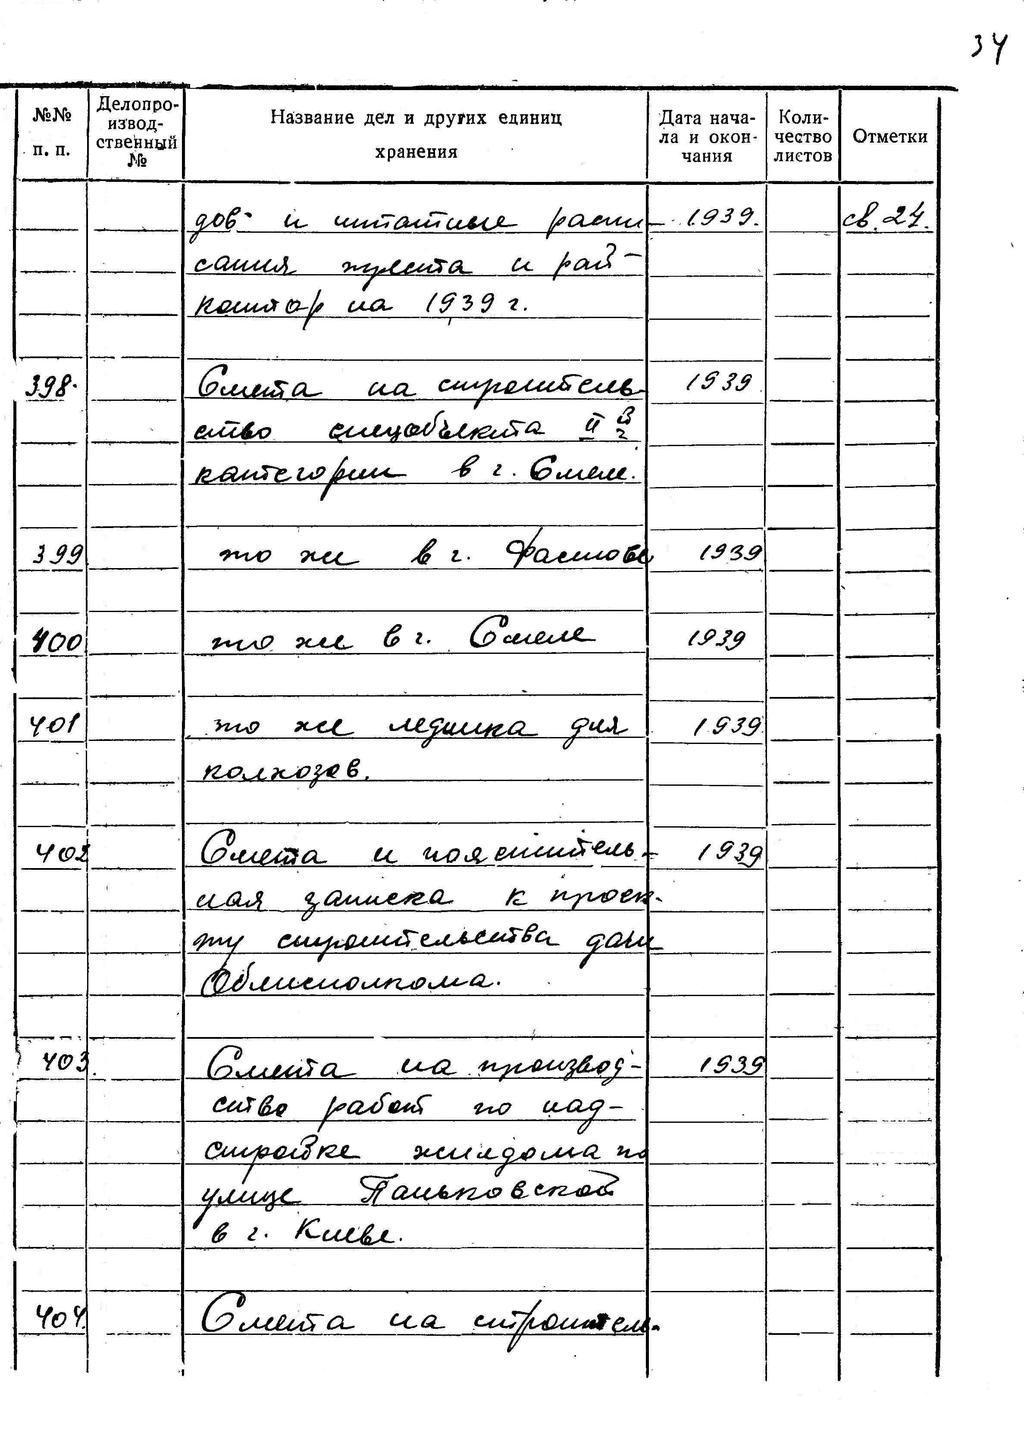 34
№№ п. п. Делопро-изводственный № Название дел и других единиц хранения Дата начала и окончания Количество листов Отметки
дов- и штатные распи- 1939. св. 24.
сания треста и рай-
контор на 1939 г.
398. Смета на строитель- 1939
ство спецобъекта II
категории в г. Смеле.
399 то же в г. Фастове 1939
400 то же в г. Смеле 1939
401 то же ледника для 1939
колхозов.
402 Смета и пояснитель- 1939
ная записка к проек-
ту строительства дачи
Облисполкома.
403. Смета на производ- 1939
ство работ по над-
стройке жилдома по
улице Паньковской
в г. Киеве.
404. Смета на строитель-